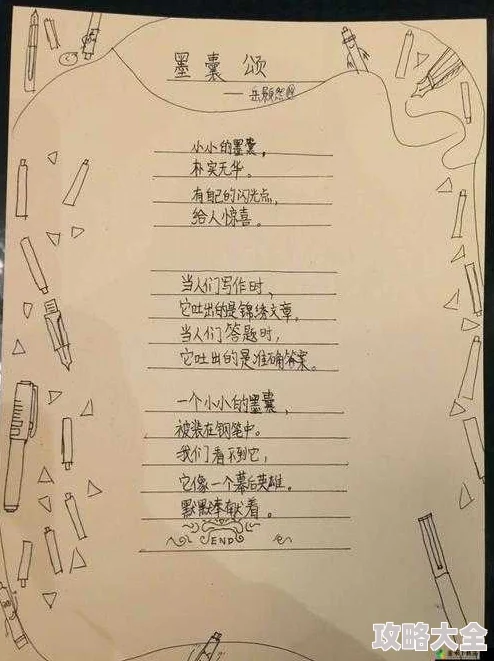 墨囊颂
小小的墨囊，
朴实无华。
有自己的闪光点，
给人惊喜。
当人们写作时，
它吐出的是锦绣文章。
当人们答题时，
它吐出的是准确答案。
一个小小的墨囊，
被装在钢笔中。
我们看不到它，
它像一个幕后英雄。
默默奉献着。
END
攻略大全